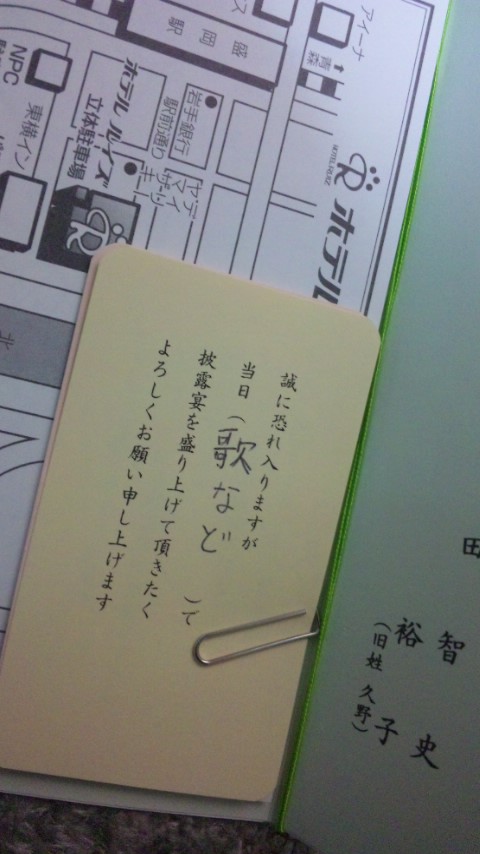 誠に恐れ入りますが
当日（歌など　　）で
披露宴を盛り上げて頂きたく
よろしくお願い申し上げます
智史
裕子
（旧姓 久野）
田
アイーナ
青森
盛岡駅
HOTEL RUIZ
ホテル
岩手銀行
駅前通り
ホテルルイズ
立体駐車場
NPC
東横イン
北